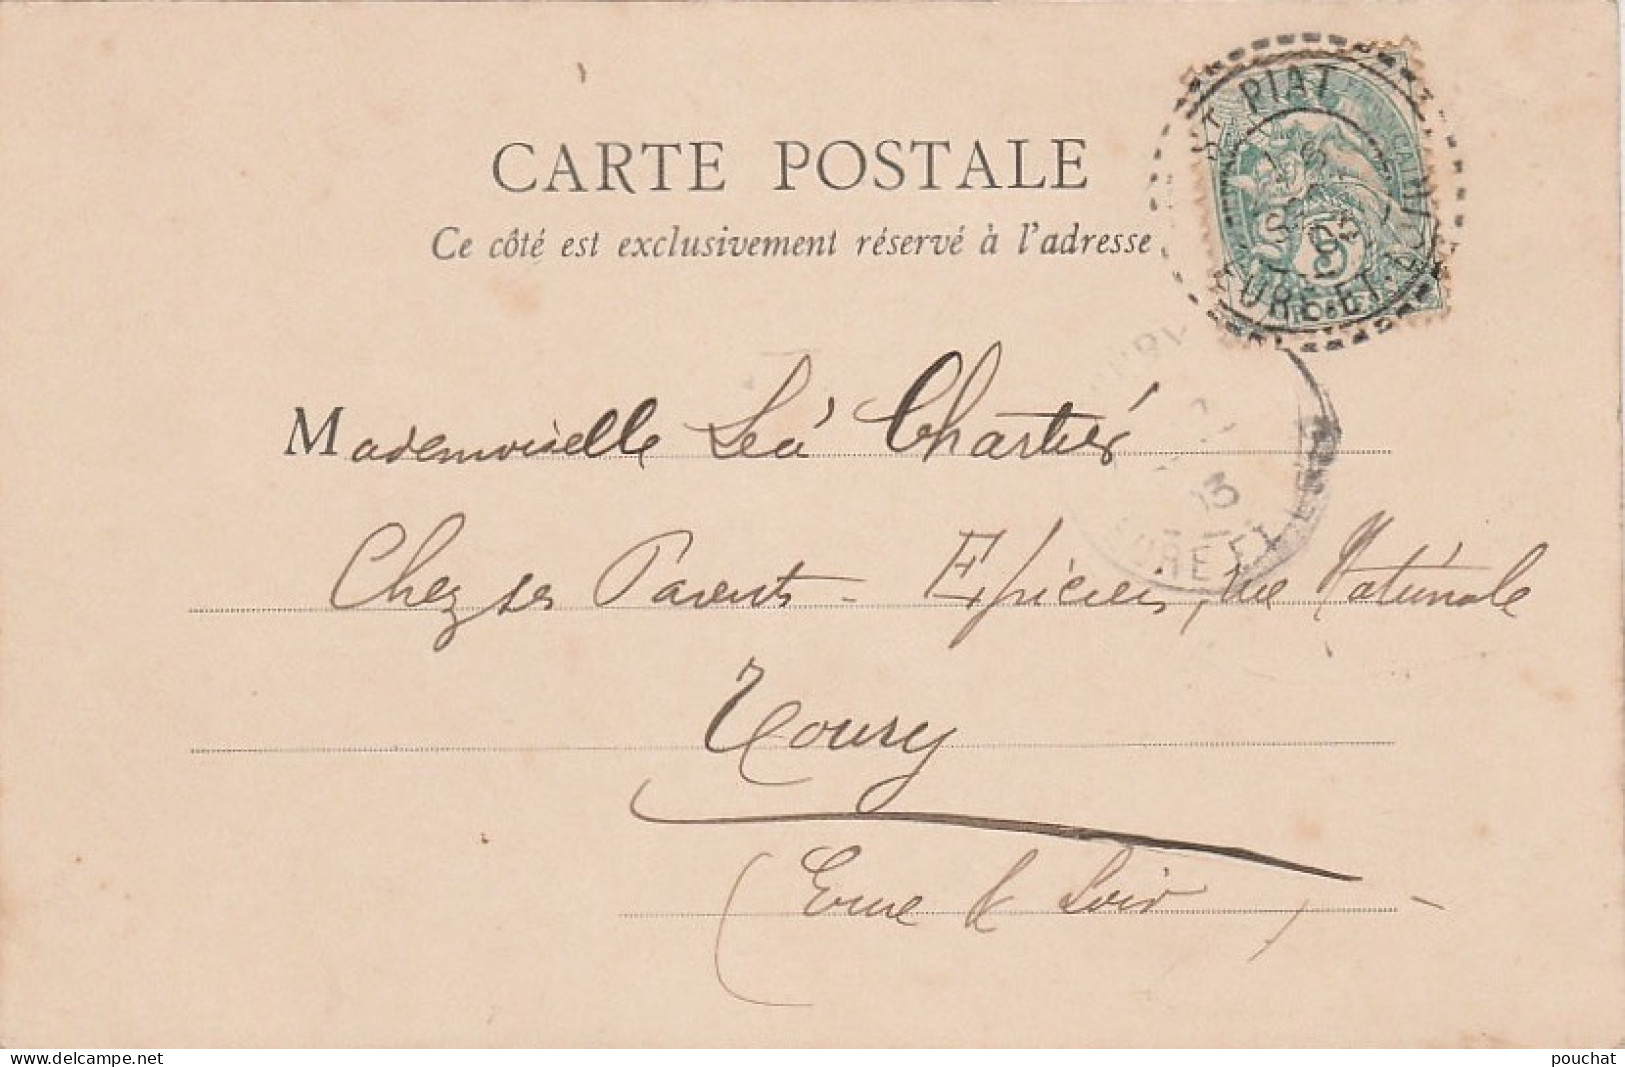 CARTE POSTALE
Ce côté est exclusivement réservé à l'adresse
ST PIAT
EURE-ET-L
Mademoiselle Léa Chartier
03
EURE ET L
Chez ses Parents - Epiciers, rue Nationale
Toury
(Eure & Loir)
www.delcampe.net
pouchat